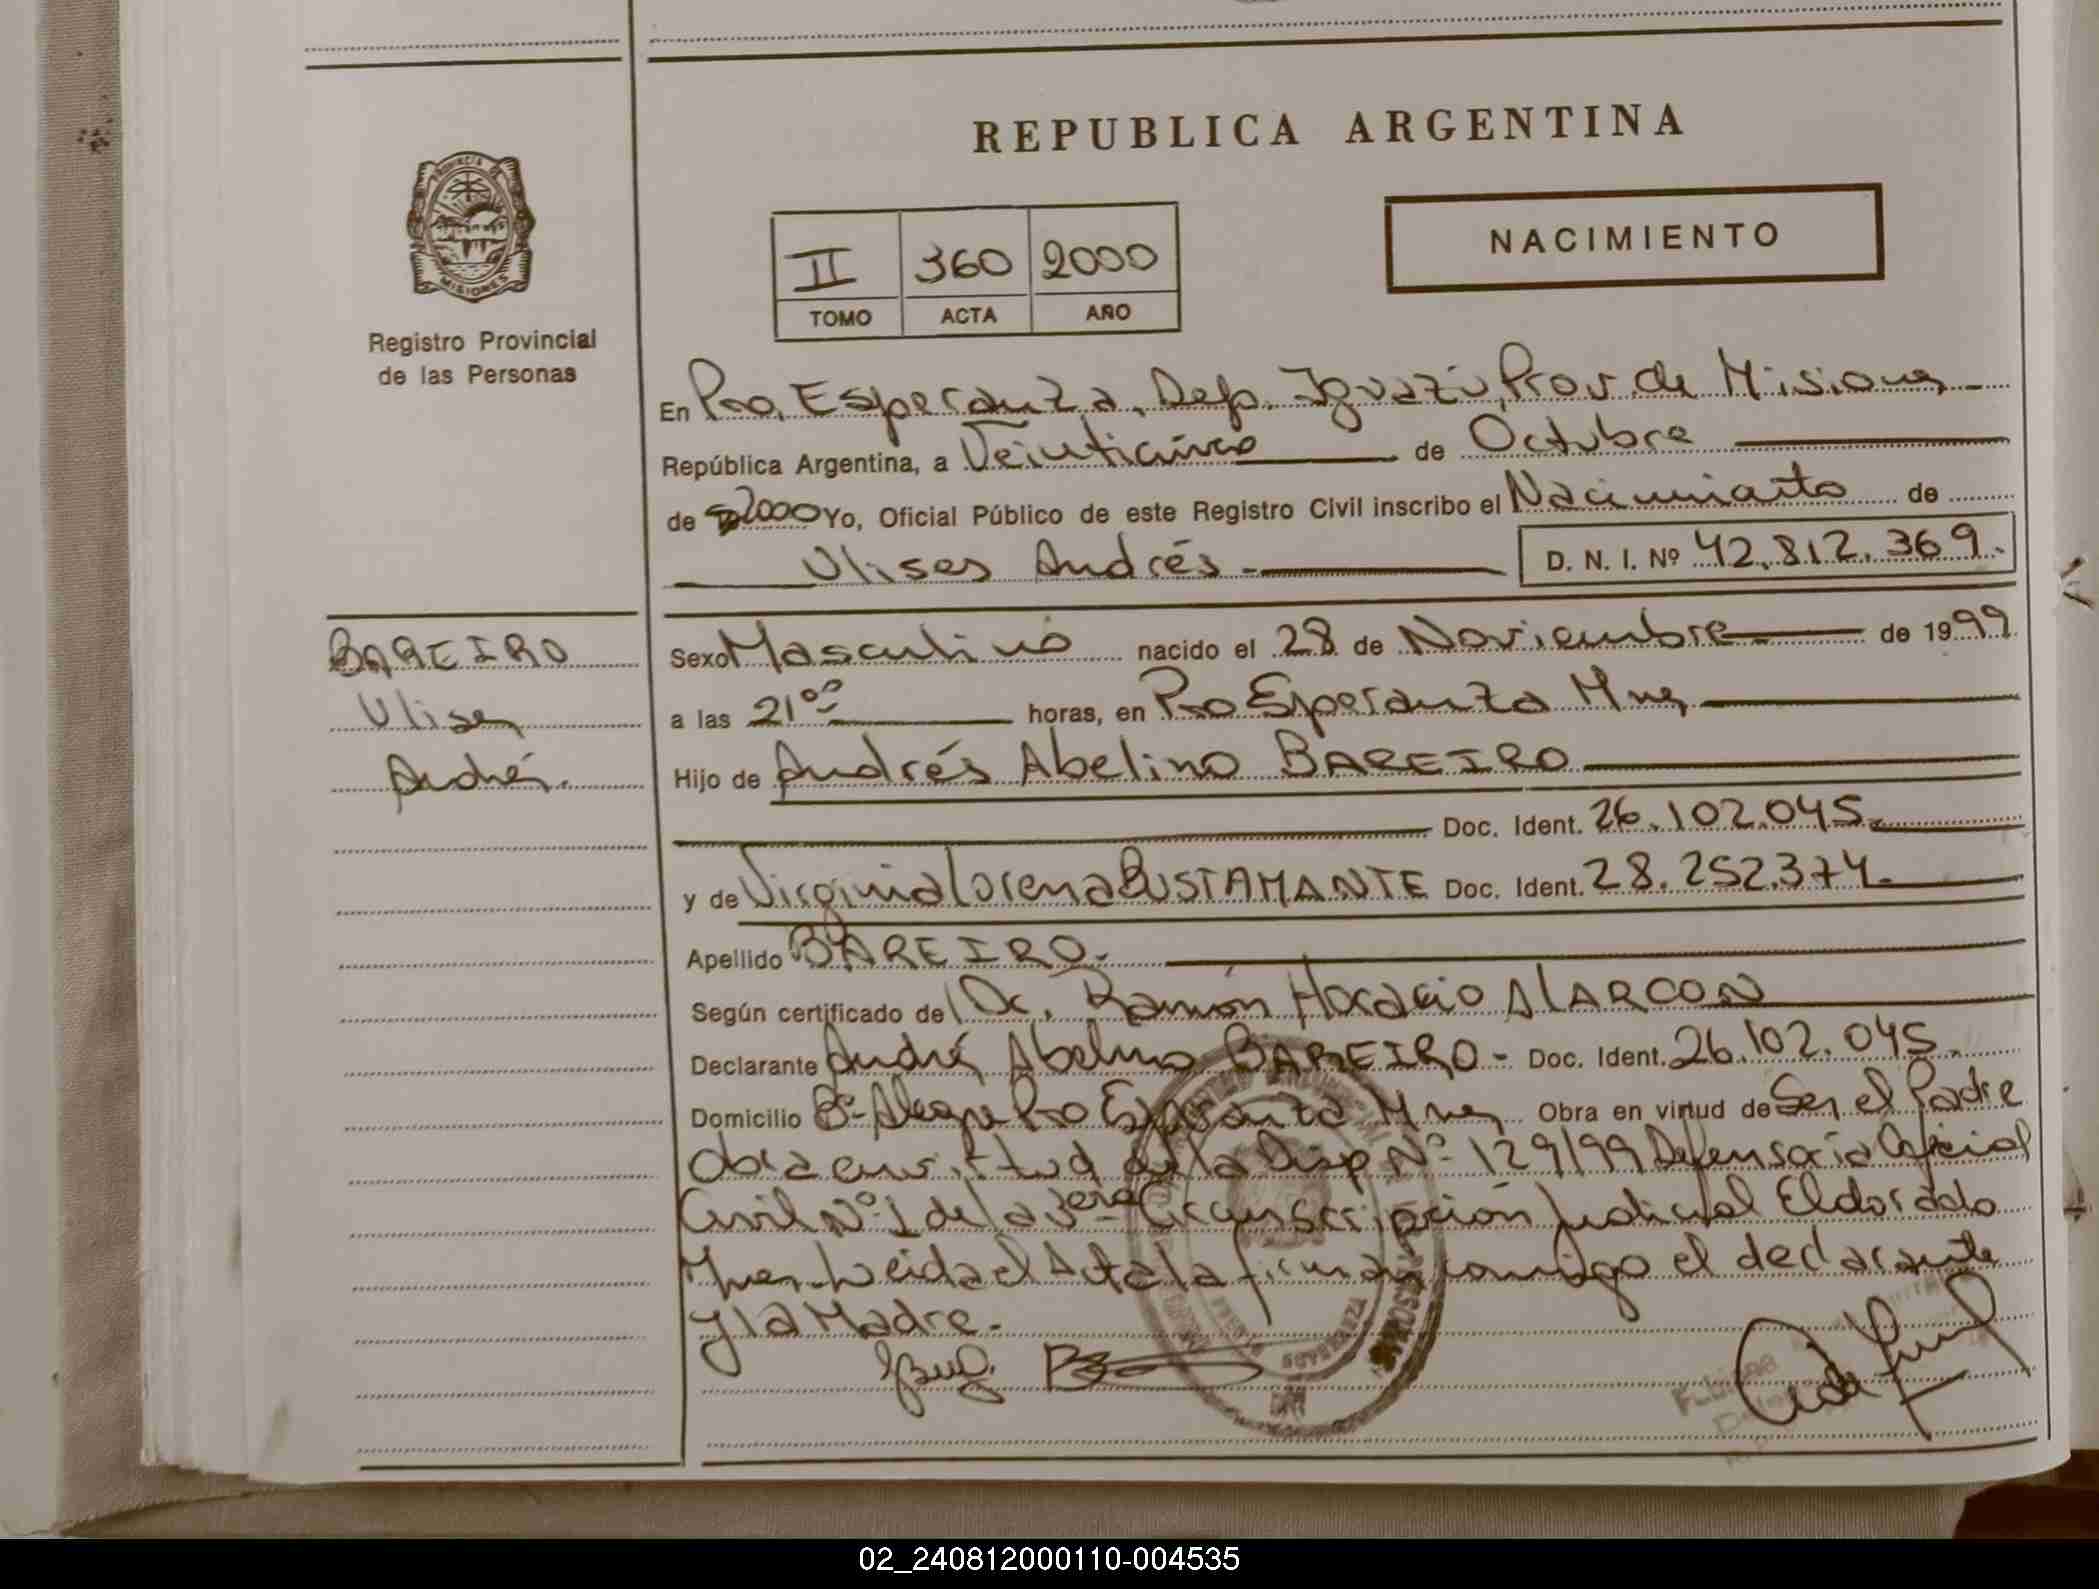 REPUBLICA ARGENTINA
NACIMIENTO
II 360 2000
TOMO ACTA AÑO
PROVINCIA DE
MISIONES
Registro Provincial
de las Personas
En Pto. Esperanza, Dep. Iguazú, Prov. de Misiones
República Argentina, a Veinticinco de Octubre
de 2000 Yo, Oficial Público de este Registro Civil inscribo el Nacimiento de
Ulises Andrés.- D. N. I. Nº 42.812.369.
BAREIRO
Ulises
Andrés.
Sexo Masculino nacido el 28 de Noviembre de 1999
a las 21ºº horas, en Pto Esperanza Mnes
Hijo de Andrés Abelino BAREIRO
Doc. Ident. 26.102.045.
y de Virginia Lorena BUSTAMANTE Doc. Ident. 28.252.374.
Apellido BAREIRO.
Según certificado de Dr. Ramón Horacio ALARCON
Declarante Andrés Abelino BAREIRO- Doc. Ident. 26.102.045.
Domicilio Bº Alegre Pto Esperanza Mnes Obra en virtud de Ser el Padre
obra en virtud de la Disp Nº 129/99 Defensoria Oficial
Civil Nº 1 de la 3era Circunscripción Judicial Eldorado
Mnes. Leida el Acta la firman conmigo el declarante
y la Madre.
02_240812000110-004535